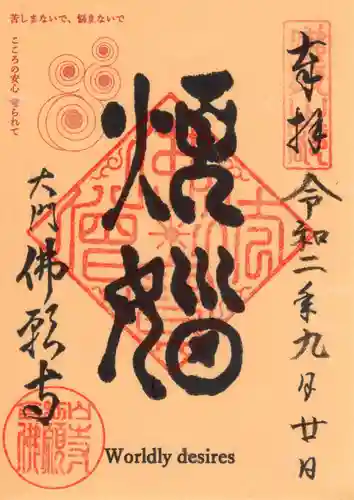 苦しまないで、悩まないで
こころの安心 守られて
奉拝
令和二年九月廿日
煩悩
大門
佛願寺
Worldly desires